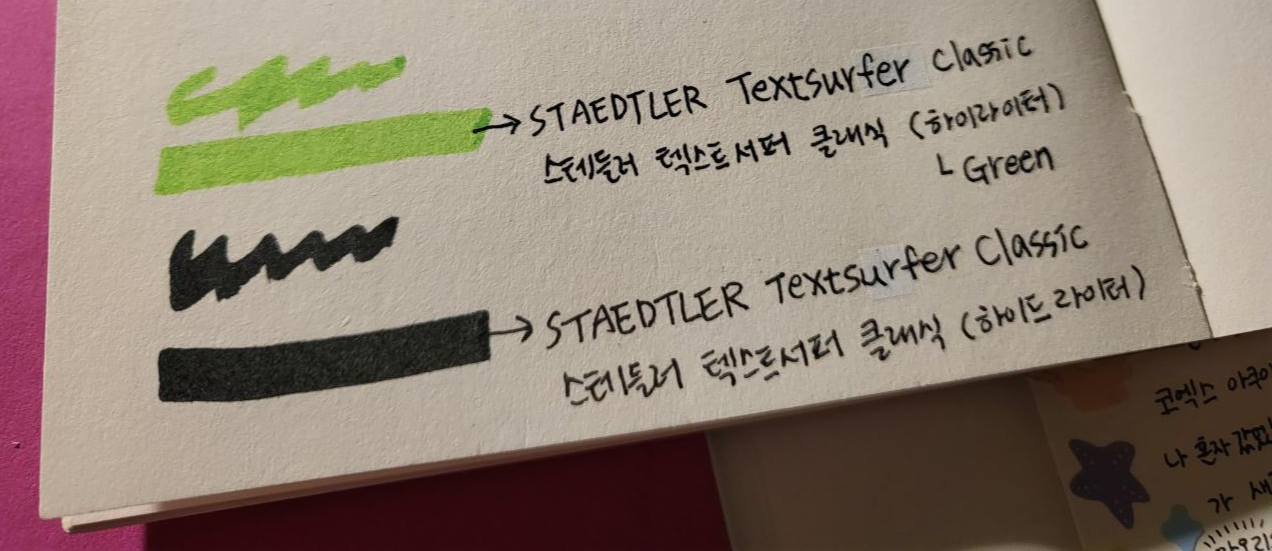 STAEDTLER Textsurfer Classic
스테들러 텍스트서퍼 클래식 (하이라이터)
ㄴ Green
STAEDTLER Textsurfer Classic
스테들러 텍스트서퍼 클래식 (하이드라이터)
코엑스 아쿠아
나 혼자
가